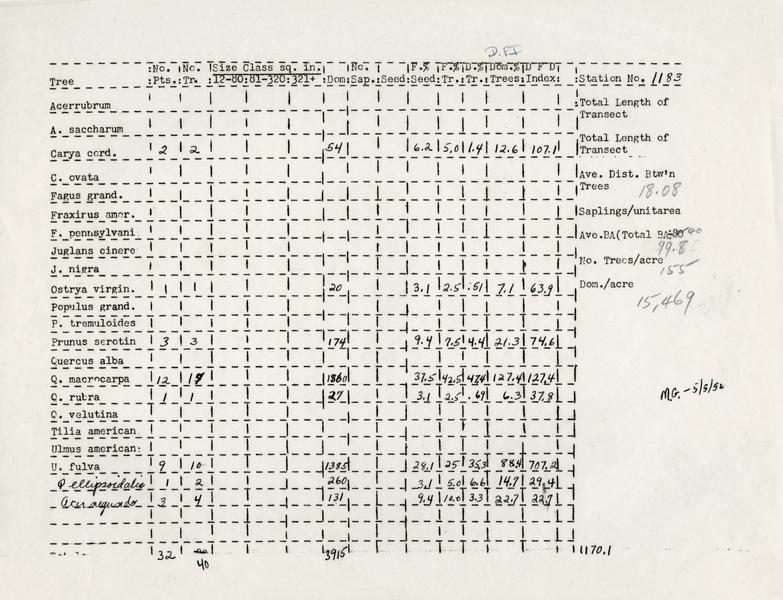 D.FI
:No. :No. :Size Class sq. in.: :No. : :F.%:F.%:D.%:Dom.%:D F D:
Tree :Pts.:Tr. :12-80:81-320:321+ :Dom:Sap.:Seed:Seed:Tr.:Tr.:Trees:Index: :Station No. 1183
Acerrubrum :Total Length of
Transect
A. saccharum
Carya cord. 2 2 54 6.2 5.0 1.4 12.6 107.1 Total Length of
Transect
C. ovata Ave. Dist. Btw'n
Fagus grand. Trees 18.08
Fraxirus amer. Saplings/unitarea
F. pennsylvani Ave.BA(Total BA
Juglans cinere 99.8
J. nigra No. Trees/acre 155
Ostrya virgin. 1 1 20 3.1 2.5 .51 7.1 63.9 Dom./acre
Populus grand. 15,469
P. tremuloides
Prunus serotin 3 3 174 9.4 7.5 4.4 21.3 74.6
Quercus alba
Q. macrocarpa 12 17 1860 37.5 42.5 47.4 127.4 127.4
Q. rubra 1 1 27 3.1 2.5 .69 6.3 37.8 M.G. - 5/5/52
Q. velutina
Tilia american
Ulmus american:
U. fulva 9 10 1385 28.1 25 35.3 88.4 707.2
Q ellipsoidalis 1 2 260 3.1 5.0 6.6 14.7 29.4
Acer negundo 3 4 131 9.4 10.0 3.3 22.7 22.7
32 40 3915 1170.1